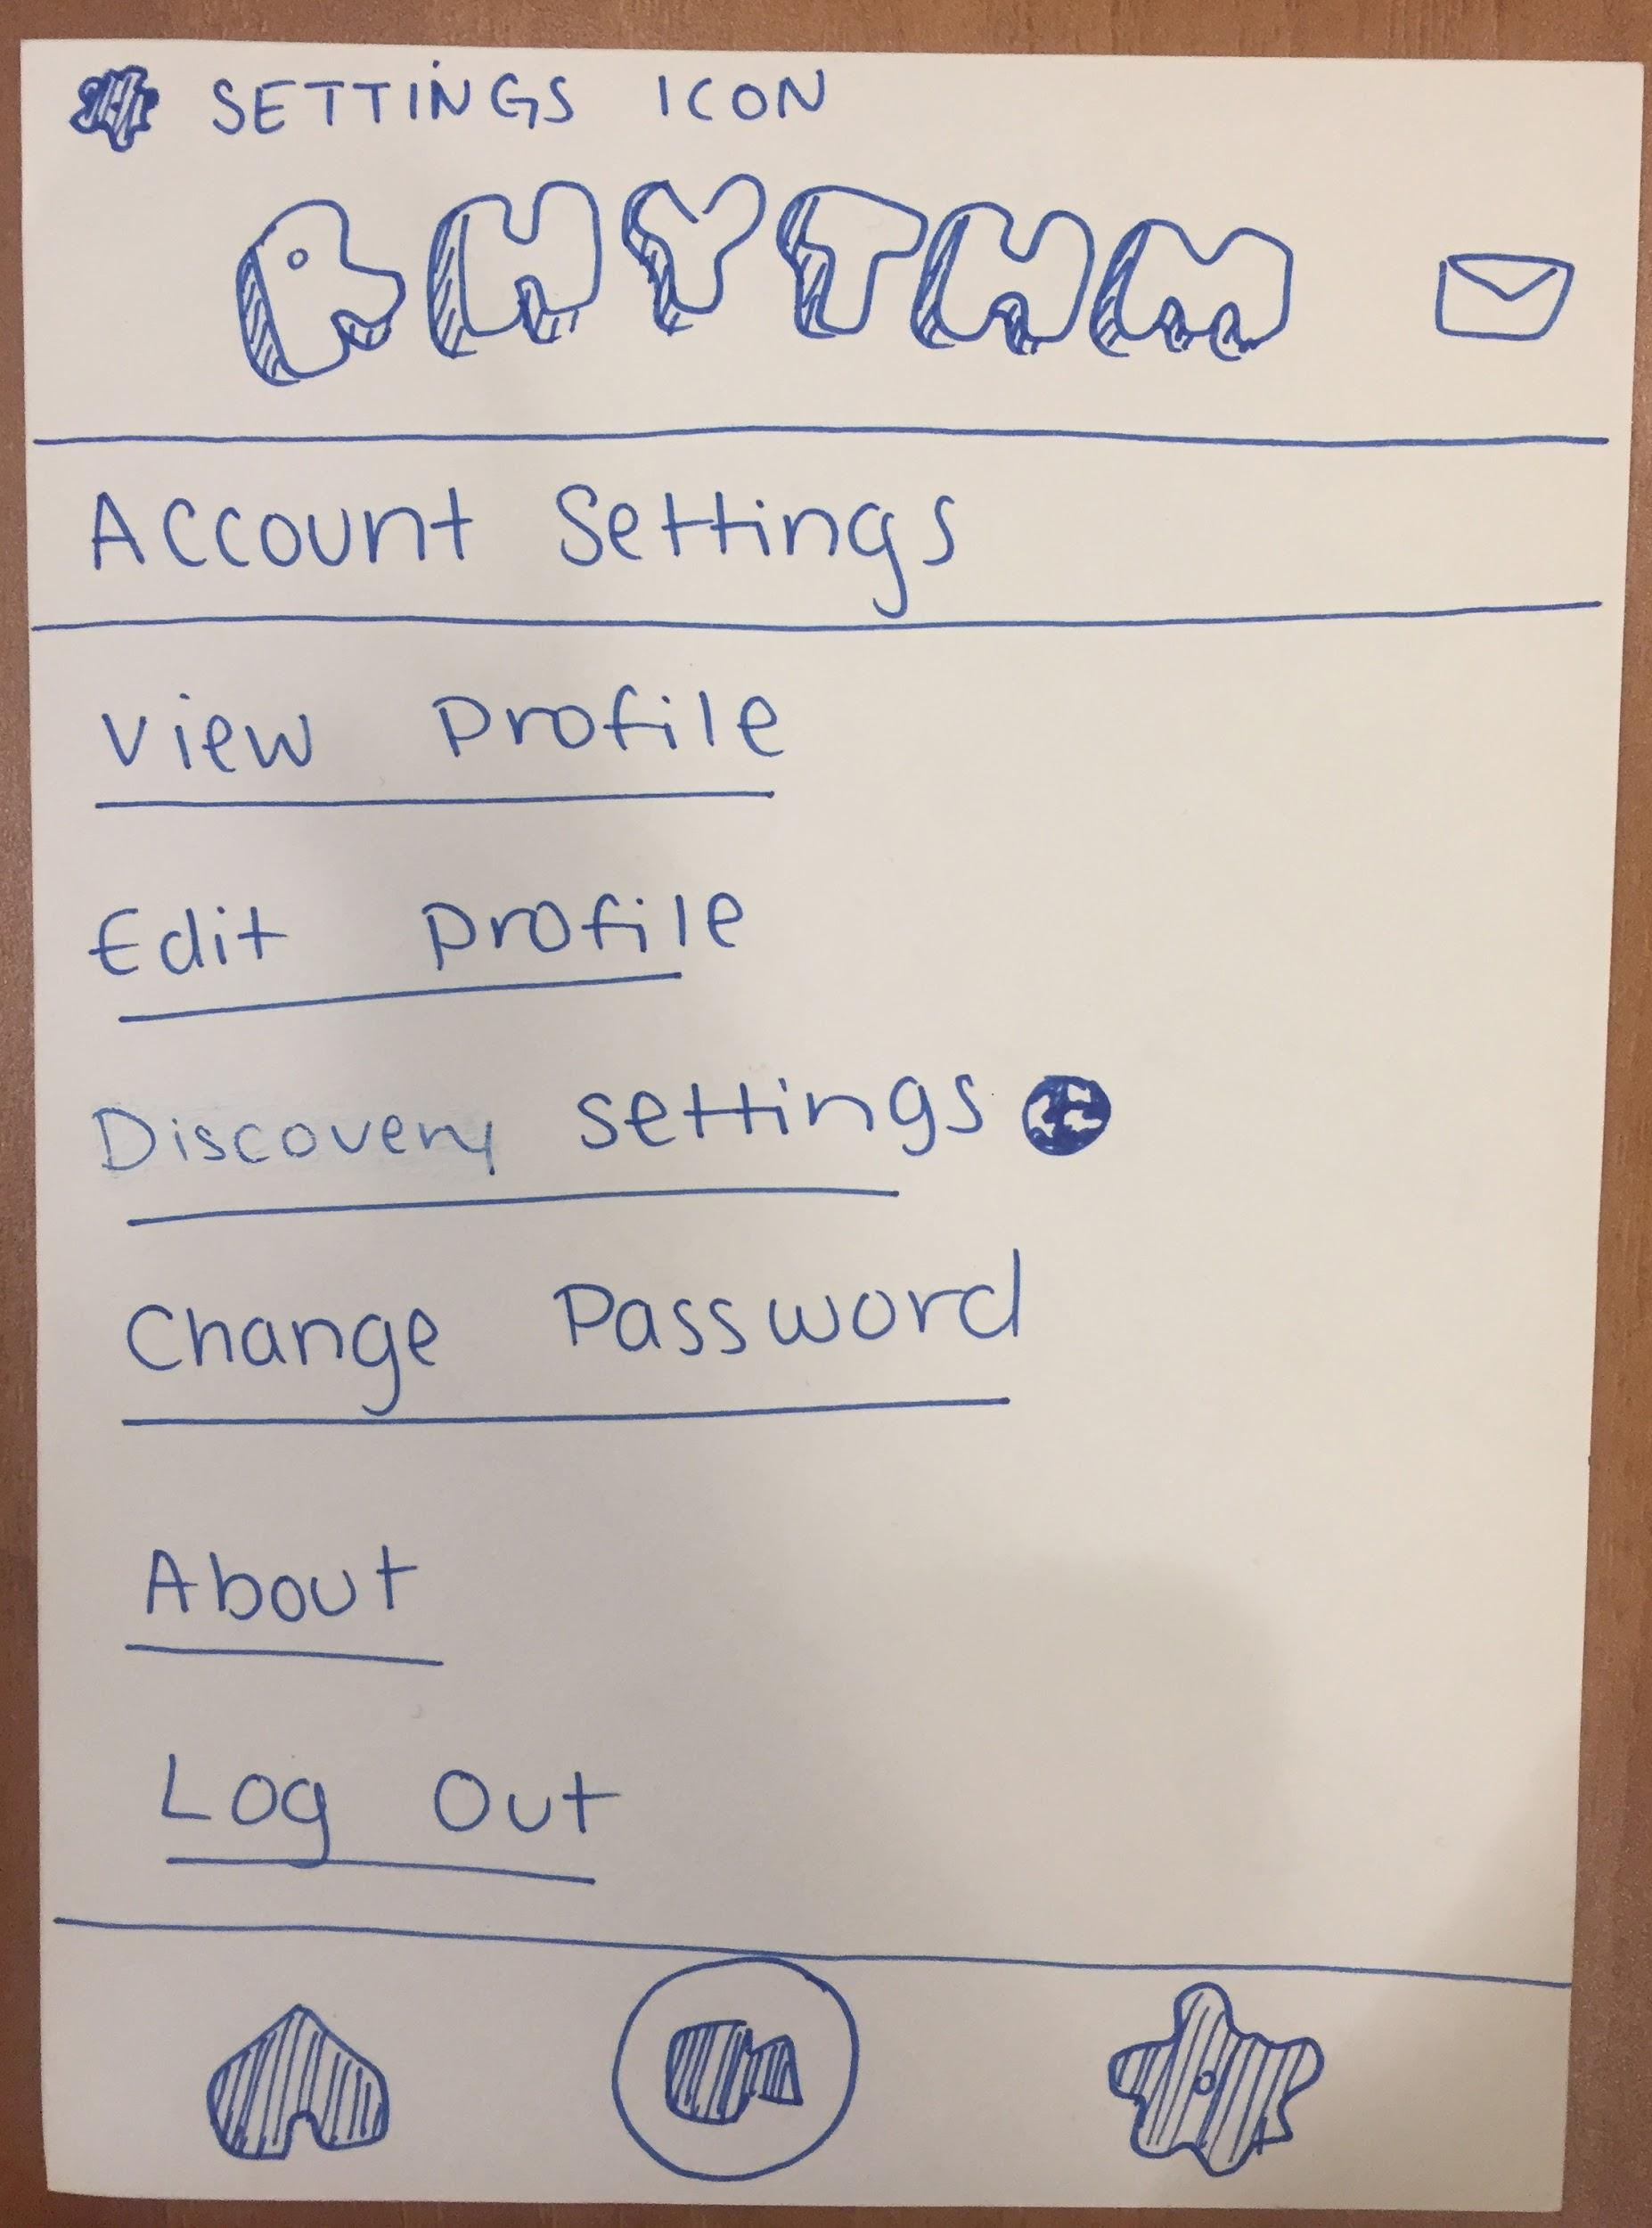 SETTINGS ICON
RHYTHM
Account Settings
View Profile
Edit Profile
Discovery settings
Change Password
About
Log Out